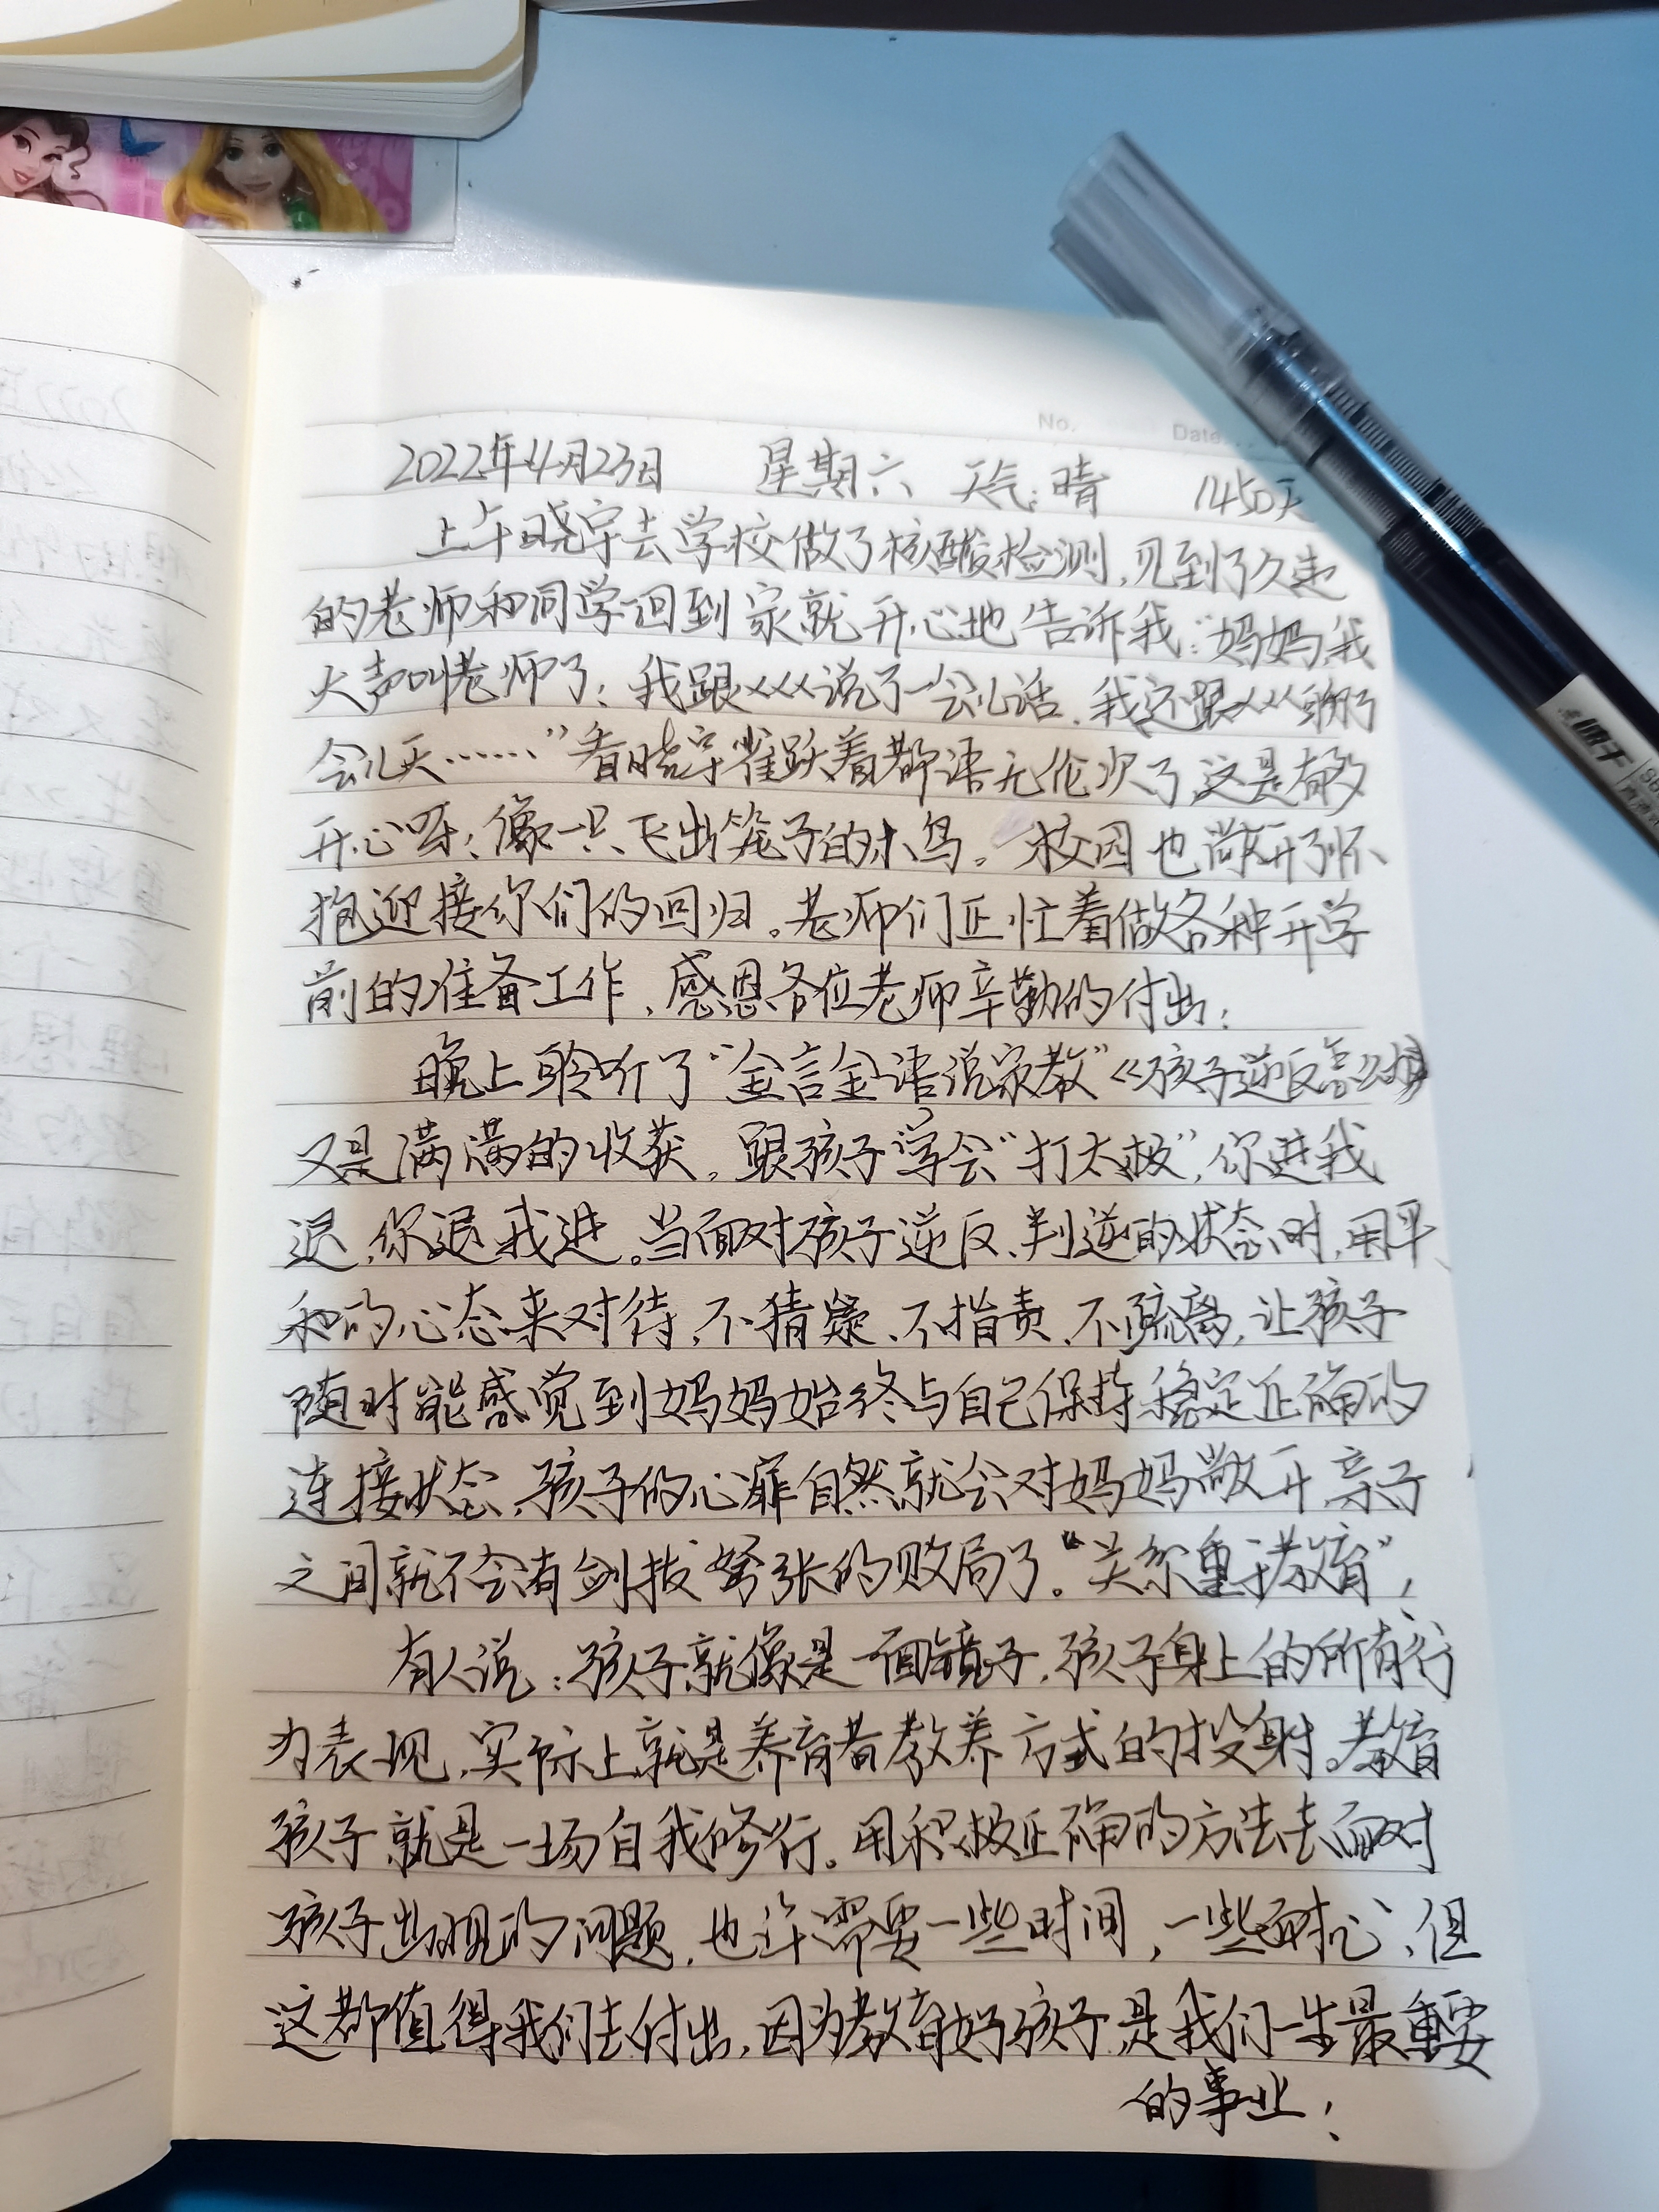 No. Date.
2022年4月23日 星期六 天气:晴 1450天
上午晓宇去学校做了核酸检测,见到了久违
的老师和同学回到家就开心地告诉我:“妈妈,我
大声叫老师了!我跟×××说了一会儿话,我还跟×××聊了
会儿天……”看晓宇雀跃着都语无伦次了,这是有多
开心呀!像一只飞出笼子的小鸟。校园也敞开了怀
抱迎接你们的回归。老师们正忙着做各种开学
前的准备工作,感恩各位老师辛勤的付出!
晚上聆听了“金言金语说家教”《孩子逆反怎么办》
又是满满的收获。跟孩子学会“打太极”,你进我
退,你退我进。当面对孩子逆反、判逆的状态时,用平
和的心态来对待,不猜疑、不指责、不疏离,让孩子
随时能感觉到妈妈始终与自己保持稳定正确的
连接状态,孩子的心扉自然就会对妈妈敞开,亲子
之间就不会有剑拔弩张的败局了。“关系重于教育”!
有人说:孩子就像是一面镜子,孩子身上的所有行
为表现,实际上就是养育者教养方式的投射。教育
孩子就是一场自我修行。用积极正确的方法去面对
孩子出现的问题,也许需要一些时间,一些耐心,但
这都值得我们去付出,因为教育好孩子,是我们一生最重要
的事业!